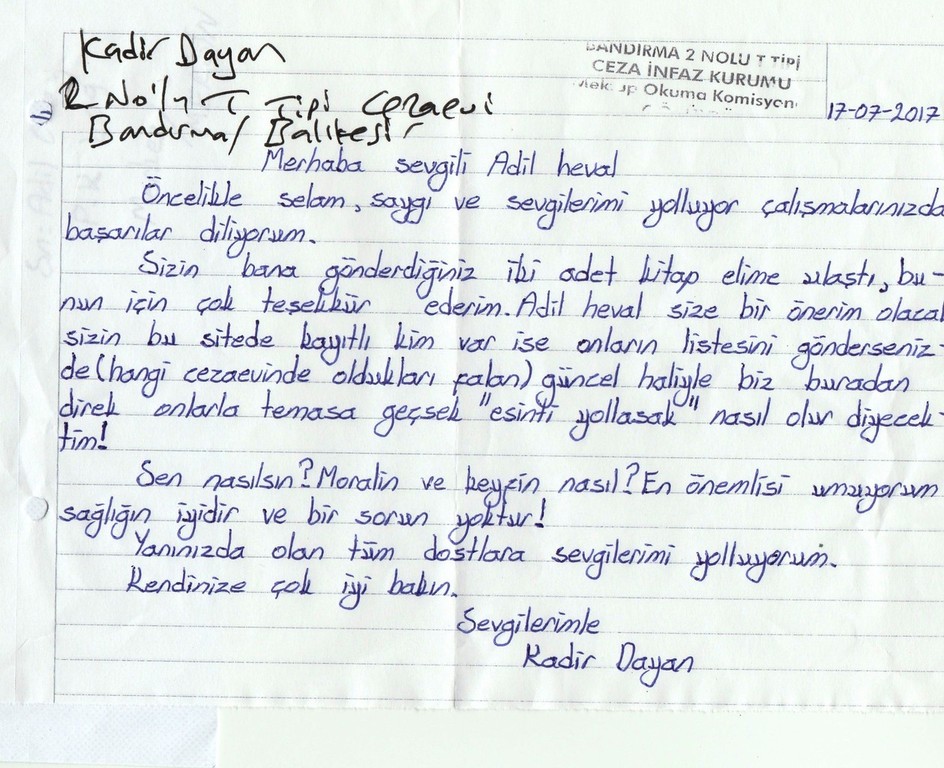 Kadir Dayan
2 No'lu T Tipi Cezaevi
Bandırma/ Balıkesir
BANDIRMA 2 NOLU T TİPİ
CEZA İNFAZ KURUMU
Mektup Okuma Komisyonu
17-07-2017
Merhaba sevgili Adil heval
Öncelikle selam, saygı ve sevgilerimi yolluyor çalışmalarınızda
başarılar diliyorum.
Sizin bana gönderdiğiniz iki adet kitap elime ulaştı, bu-
nun için çok teşekkür ederim. Adil heval size bir önerim olacak
sizin bu sitede kayıtlı kim var ise onların listesini gönderseniz-
de (hangi cezaevinde oldukları falan) güncel haliyle biz buradan
direk onlarla temasa geçsek "esinti yollasak" nasıl olur diyecek-
tim!
Sen nasılsın? Moralin ve keyfin nasıl? En önemlisi umuyorum
sağlığın iyidir ve bir sorun yoktur!
Yanınızda olan tüm dostlara sevgilerimi yolluyorum.
Kendinize çok iyi bakın.
Sevgilerimle
Kadir Dayan